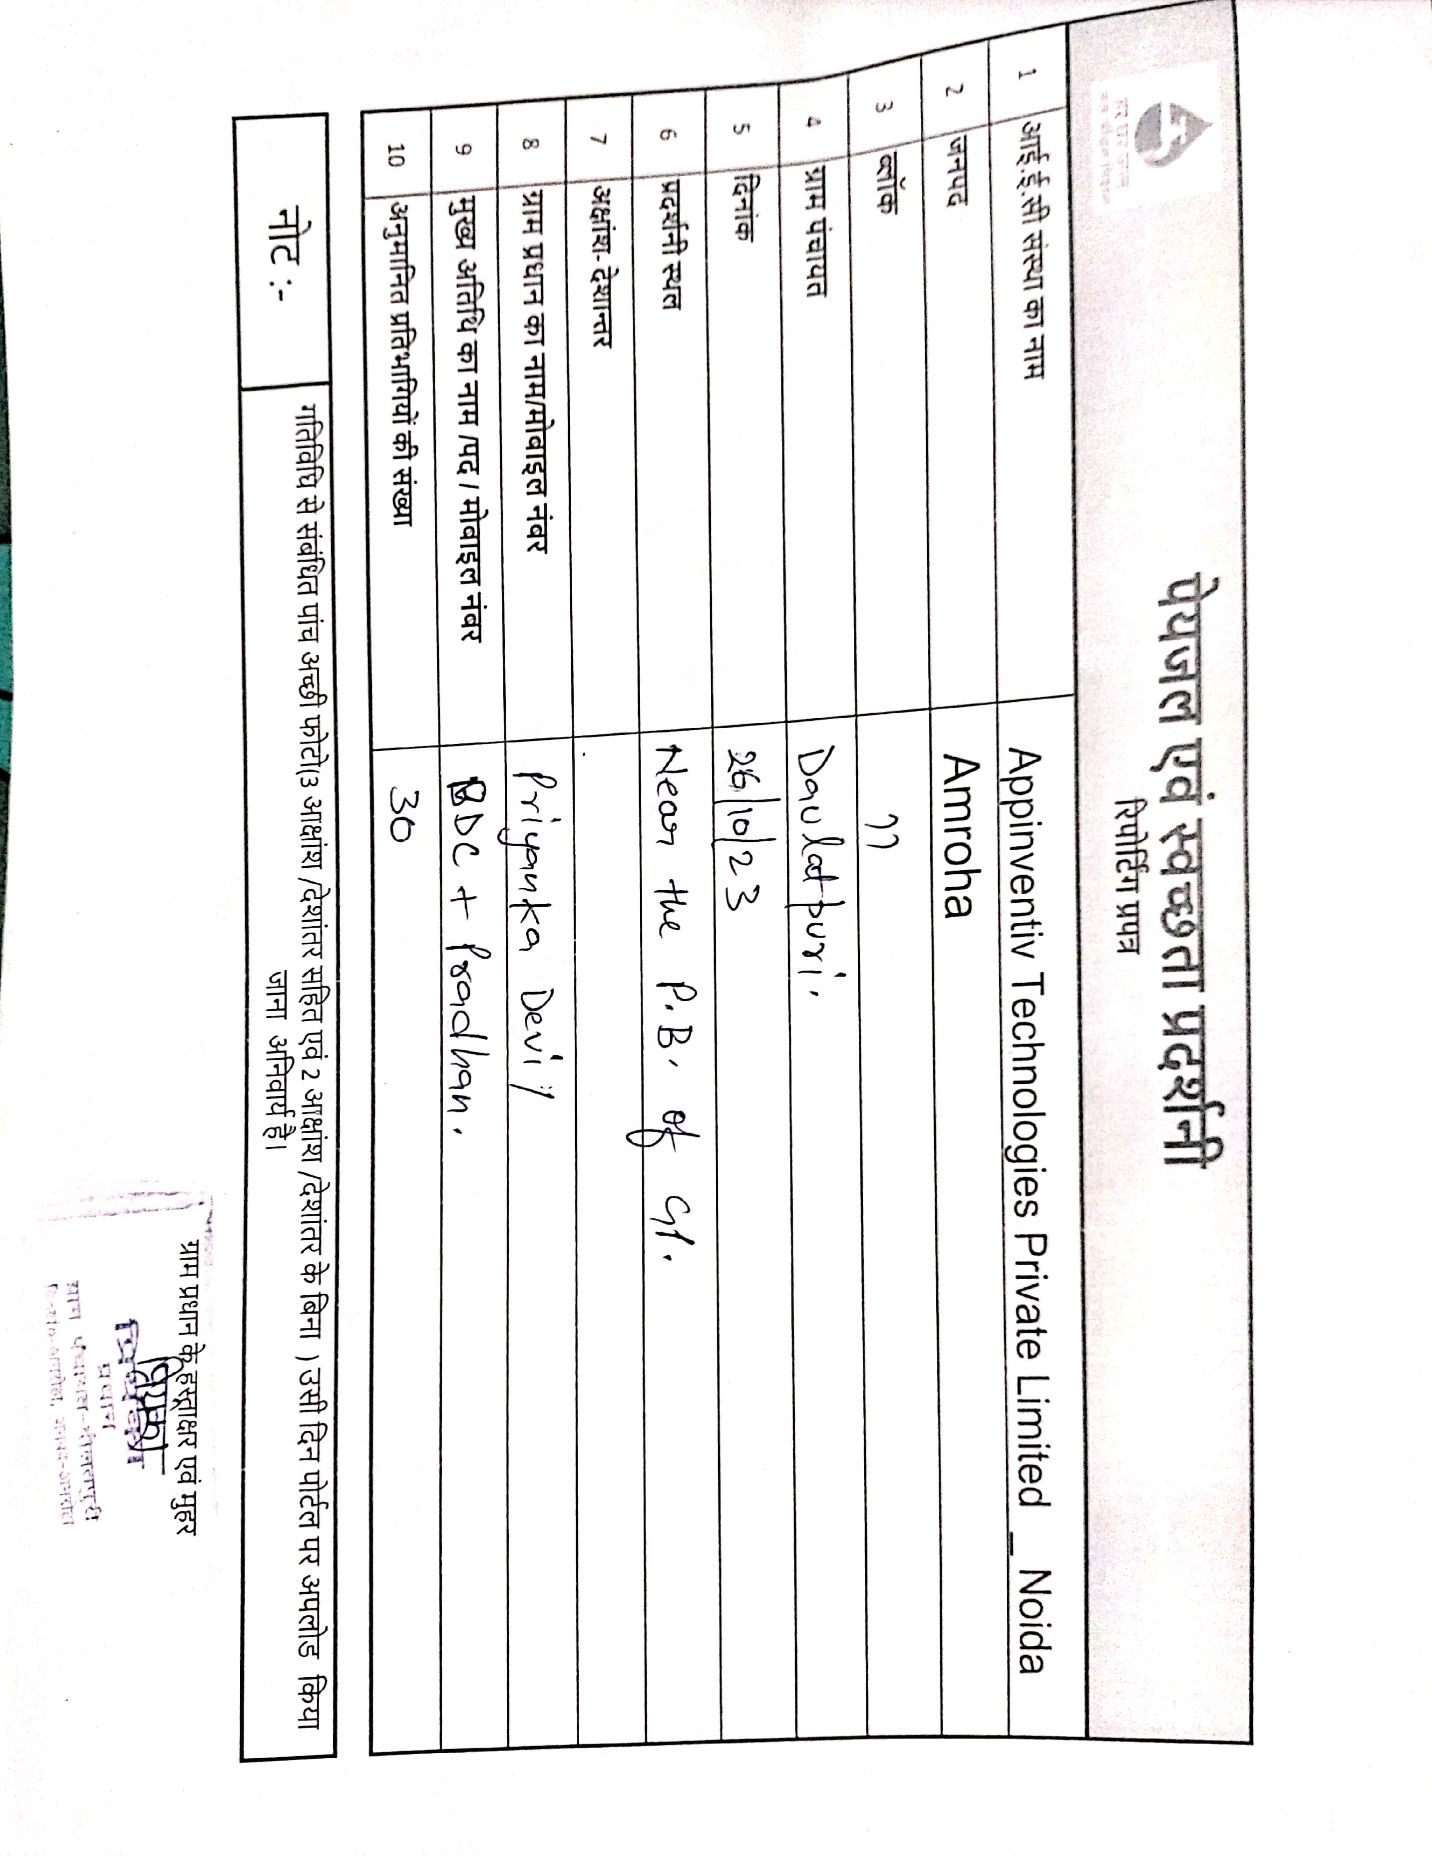 पेयजल एवं स्वच्छता प्रदर्शनी
रिपोर्टिंग प्रपत्र
1 आई.ई.सी संस्था का नाम Appinventiv Technologies Private Limited _ Noida
2 जनपद Amroha
3 ब्लॉक ,,
4 ग्राम पंचायत Daulatpuri.
5 दिनांक 26/10/23
6 प्रदर्शनी स्थल Near the P.B. of
7 अक्षांश- देशान्तर
8 ग्राम प्रधान का नाम/मोबाइल नंबर Priyanka Devi
9 मुख्य अतिथि का नाम /पद / मोबाइल नंबर BDC + Pradhan.
10 अनुमानित प्रतिभागियों की संख्या 30
नोट :-
गतिविधि से संबंधित पांच अच्छी फोटो(3 आक्षांश /देशांतर सहित एवं 2 आक्षांश /देशांतर के बिना ) उसी दिन पोर्टल पर अपलोड किया
जाना अनिवार्य है।
ग्राम प्रधान के हस्ताक्षर एवं मुहर
प्रधान